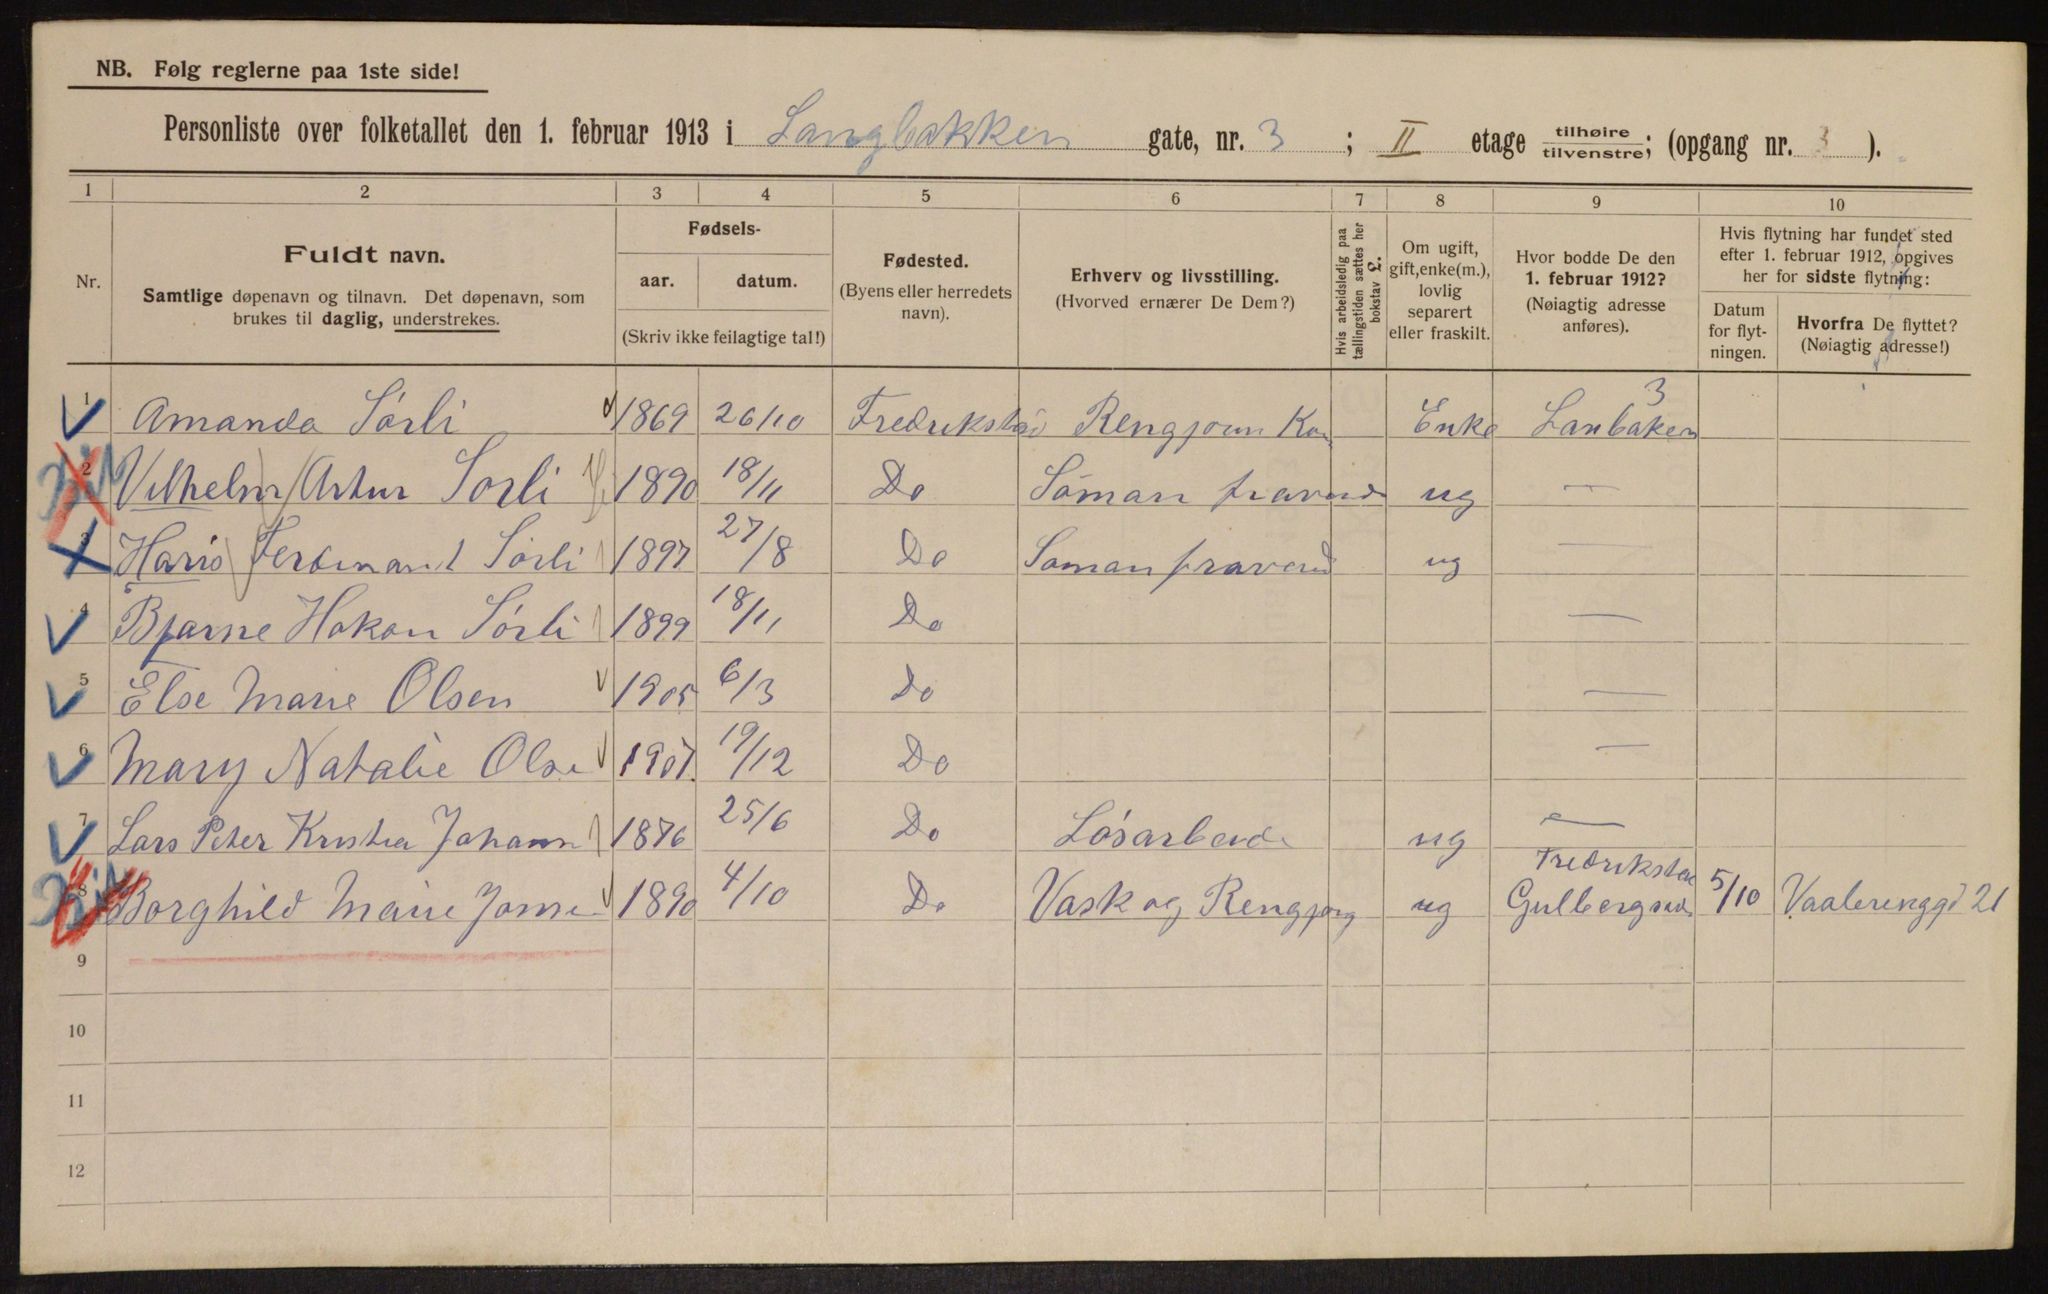 NB. Følg reglerne paa 1ste side!
Personliste over folketallet den 1. februar 1913 i Langbakken gate, nr. 3 ; II etage tilhøire tilvenstre; (opgang nr. 3 ).
1 2 3 4 5 6 7 8 9 10
Nr.
Fuldt navn.
Samtlige døpenavn og tilnavn. Det døpenavn, som
brukes til daglig, understrekes.
Fødsels-
aar. datum.
(Skriv ikke feilagtige tal!)
Fødested.
(Byens eller herredets
navn).
Erhverv og livsstilling.
(Hvorved ernærer De Dem?)
Hvis arbeidsledig paa
tællingstiden sættes her
bokstav L.
Om ugift,
gift, enke(m.),
lovlig
separert
eller fraskilt.
Hvor bodde De den
1. februar 1912?
(Nøiagtig adresse
anføres).
Hvis flytning har fundet sted
efter 1. februar 1912, opgives
her for sidste flytning:
Datum
for flyt-
ningen.
Hvorfra De flyttet?
(Nøiagtig adresse!)
3
1 Amanda Sörli 1869 26/10 Fredrikstad Rengjörin Kon Enke Lanbaken
2 Vilhelm Artur Sorli 1890 18/11 Do Söman fravend ug —
3 Haris Ferdinant Sörli 1897 27/8 Do Soman fravend ug —
4 Bjarne Hakon Sörli 1899 18/11 Do —
5 Else Marie Olsen 1905 6/3 Do —
6 Mary Natalie Olse 1907 19/12 Do —
7 Lars Peter Kristia Johann 1876 25/6 Do Lösarbeide ug —
Fredrikstad
8 Borghild Marie Jonse 1890 4/10 Do Vask og Rengjörg ug 5/10 Vaalerenggd 21
9
10
11
12